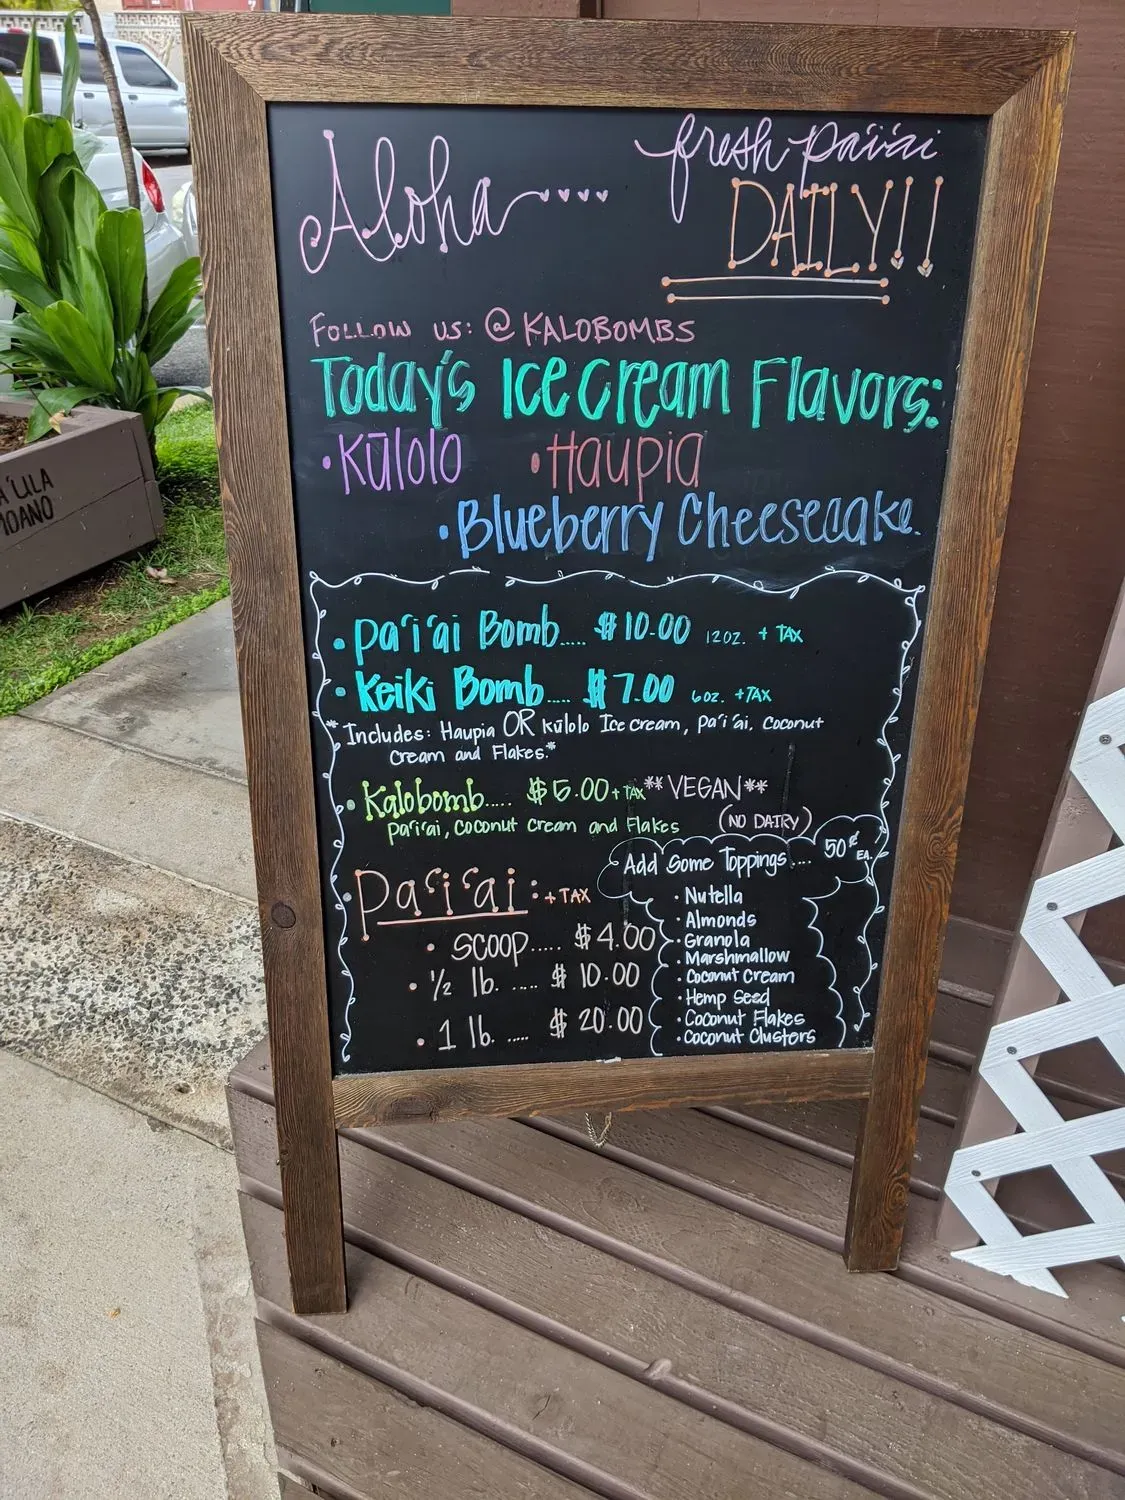 Aloha
fresh pa'i'ai
DAILY!!
FOLLOW US: @KALOBOMBS
Today's Ice Cream Flavors:
• Kūlolo • Haupia
• Blueberry Cheesecake
• Pa'i'ai Bomb..... $10.00 12oz. + TAX
• Keiki Bomb.... $7.00 6oz. +TAX
*Includes: Haupia OR Kūlolo Ice cream, pa'i'ai, Coconut
Cream and Flakes*
• Kalobomb..... $5.00 + TAX **VEGAN**
pa'i'ai, Coconut Cream and Flakes (NO DAIRY)
Add Some Toppings.... 50¢ EA.
• Nutella
• Almonds
• Granola
• Marshmallow
• Coconut Cream
• Hemp Seed
• Coconut Flakes
• Coconut Clusters
• Pa'i'ai: + TAX
• SCOOP..... $4.00
• 1/2 lb. .... $10.00
• 1 lb. ..... $20.00